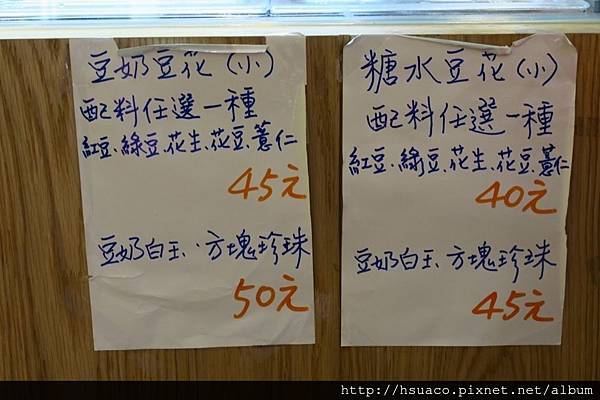 豆奶豆花(小)
配料任選一種
紅豆、綠豆、花生、花豆、薏仁
45元
豆奶白玉、方塊珍珠
50元
糖水豆花(小)
配料任選一種
紅豆、綠豆、花生、花豆、薏仁
40元
豆奶白玉、方塊珍珠
45元
http://hsuaco.pixnet.net/album